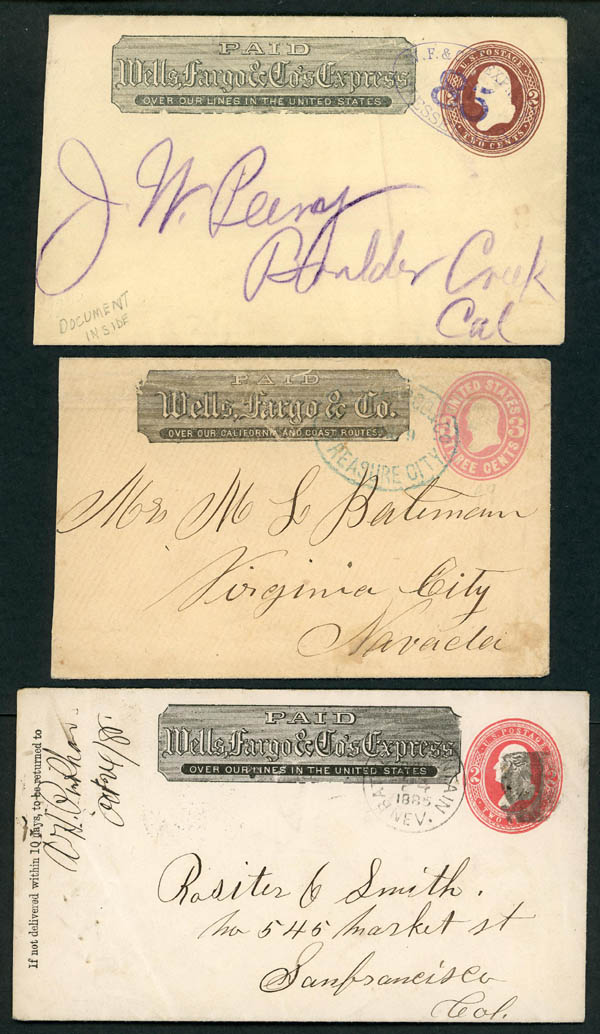 PAID
Wells, Fargo & Co's Express
OVER OUR LINES IN THE UNITED STATES
U.S. POSTAGE
TWO CENTS
J. W. Peery
Boulder Creek
Cal
DOCUMENT
INSIDE
PAID
Wells, Fargo & Co.
OVER OUR CALIFORNIA AND COAST ROUTES.
REASURE CITY
UNITED STATES
EE CENTS
Mrs M L Bateman
Virginia City
Navada
PAID
Wells, Fargo & Co's Express
OVER OUR LINES IN THE UNITED STATES
1885
NEV.
U.S. POSTAGE
2
TWO
If not delivered within 10 days, to be returned to
Oct 24/85
Rositer & Smith.
no 545 market st
Sanfrancisco
Cal.